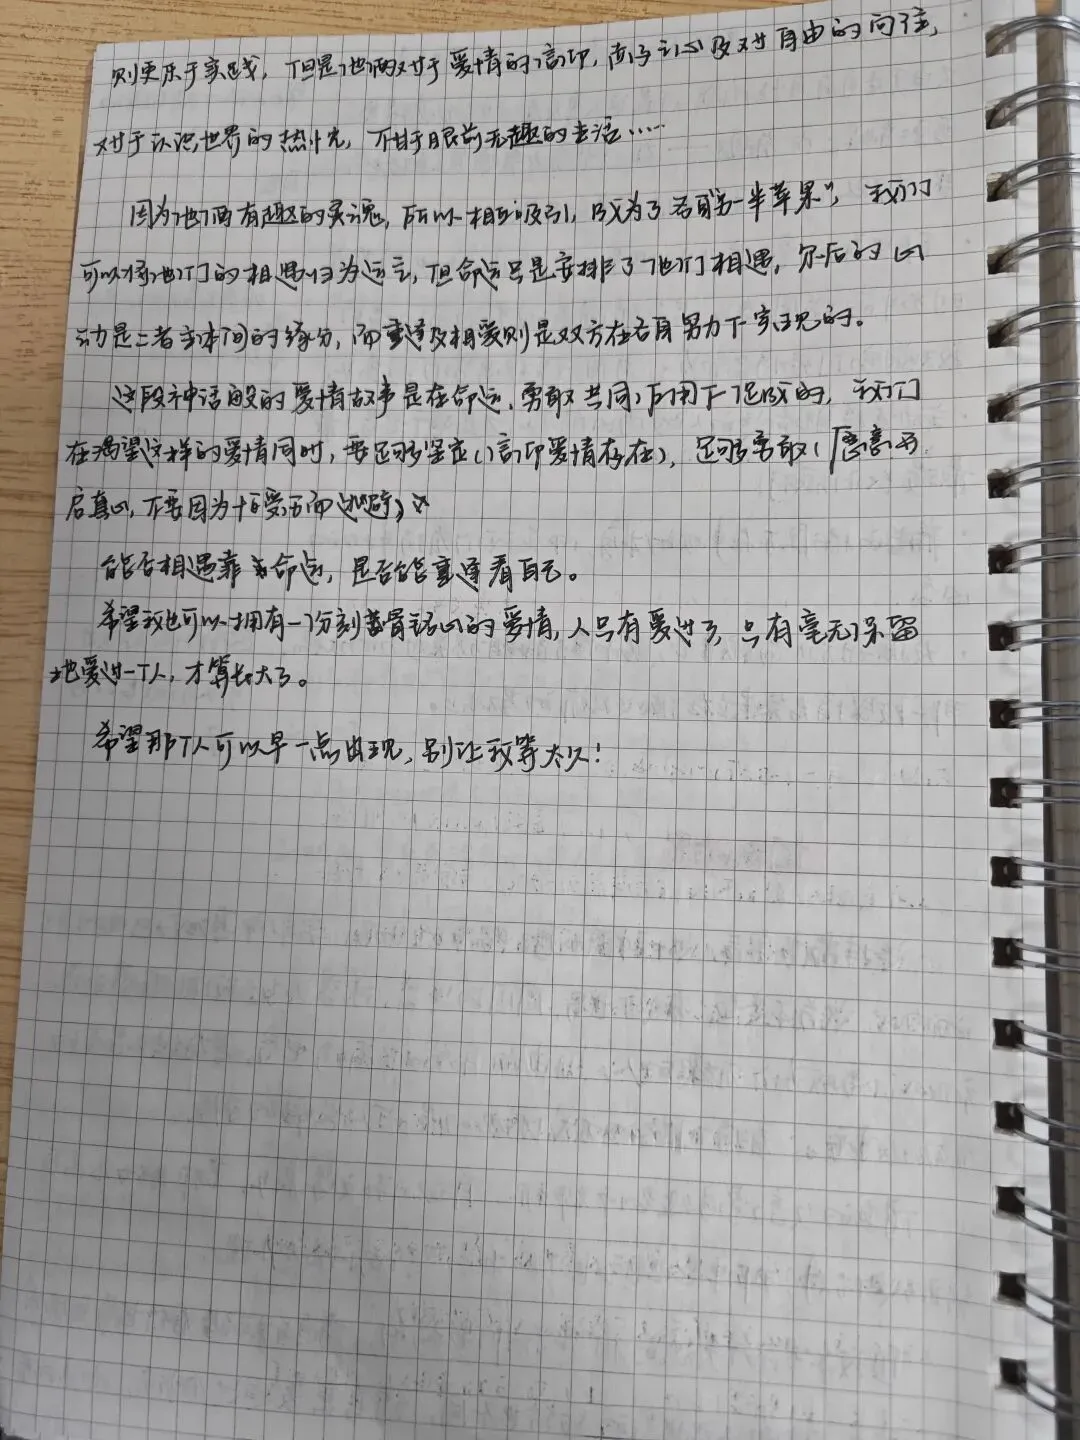 则更乐于实践，但是他俩对于爱情的信仰，向与之心及对自由的向往，
对于认识世界的热忱，不甘于眼前无趣的生活……
因为他俩有趣的灵魂，所以相互吸引，成为了君身“另一半苹果”，我们
可以将他们的相遇归为运气，但命运只是安排了他们相遇，尔后的心
动是二者主体间的缘分，而重逢及相爱则是双方在各自努力下实现的。
这段神话般的爱情故事是在命运、勇敢共同作用下促成的，我们
在渴望这样的爱情同时，要足够坚定（信仰爱情存在），足够勇敢（愿意开
启真心，不要因为怕受伤而逃避）
能否相遇靠命运，是否能重逢看自己。
希望我也可以拥有一份刻骨铭心的爱情，人只有爱过了，只有毫无保留
地爱过一个人，才算长大了。
希望那个人可以早一点出现，别让我等太久！